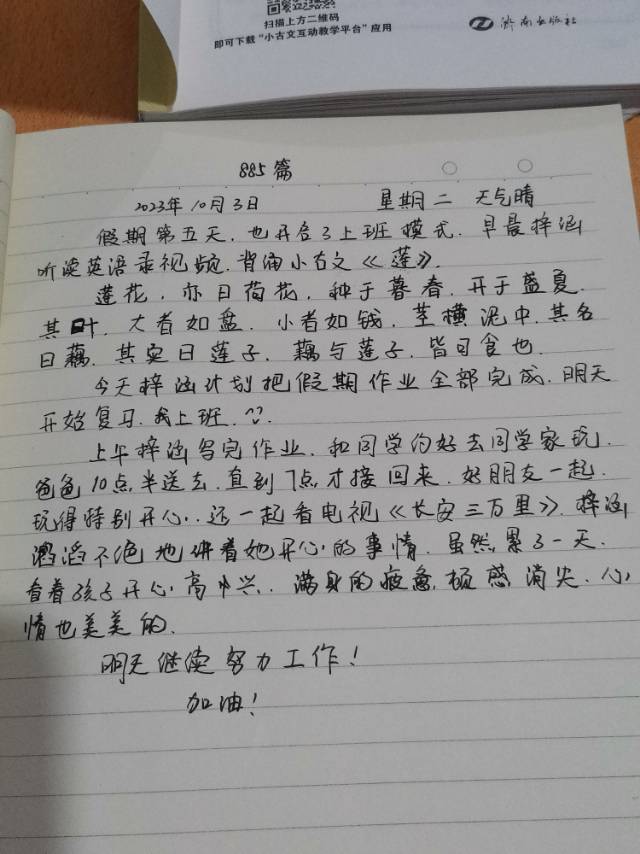 扫描上方二维码
即可下载“小古文互动教学平台”应用
济南出版社
885篇
2023年10月3日 星期二 天气晴
假期第五天.也开启了上班模式.早晨梓涵
听读英语录视频.背诵小古文《莲》.
莲花,亦曰荷花,种于暮春.开于盛夏.
其叶.大者如盘.小者如钱.茎横泥中.其名
曰藕.其实曰莲子.藕与莲子.皆可食也.
今天梓涵计划把假期作业全部完成.明天
开始复习.我上班.
上午梓涵写完作业.和同学约好去同学家玩.
爸爸10点半送去.直到7点才接回来.好朋友一起.
玩得特别开心..还一起看电视《长安三万里》.梓涵
滔滔不绝地讲着她开心的事情.虽然累了一天.
看着孩子开心高兴.满身的疲惫.顿感消失.心
情也美美的.
明天继续努力工作!
加油!